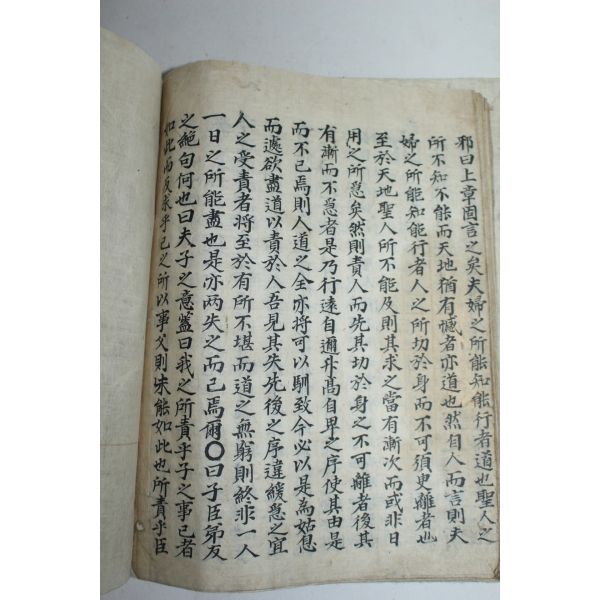 邪曰上章固言之矣夫婦之所能知能行者道也聖人之
所不知不能而天地猶有憾者亦道也然自人而言則夫
婦之所能知能行者人之所切於身而不可須臾離者也
至於天地聖人所不能及則其求之當有漸次而或非日
用之所急矣然則責人而先其切於身之不可離者後其
有漸而不急者是乃行遠自邇升高自卑之序使其由是
而不已焉則人道之全亦將可以馴致今必以是為姑息
而遽欲盡道以責於人吾見其失先後之序違緩急之宜
人之受責者將至於有所不堪而道之無窮則終非一人
一日之所能盡也是亦两失之而已焉爾〇曰子臣弟友
之絶句何也曰夫子之意蓋曰我之所責乎子之事己者
如此而反求乎己之所以事父則未能如此也所責乎臣